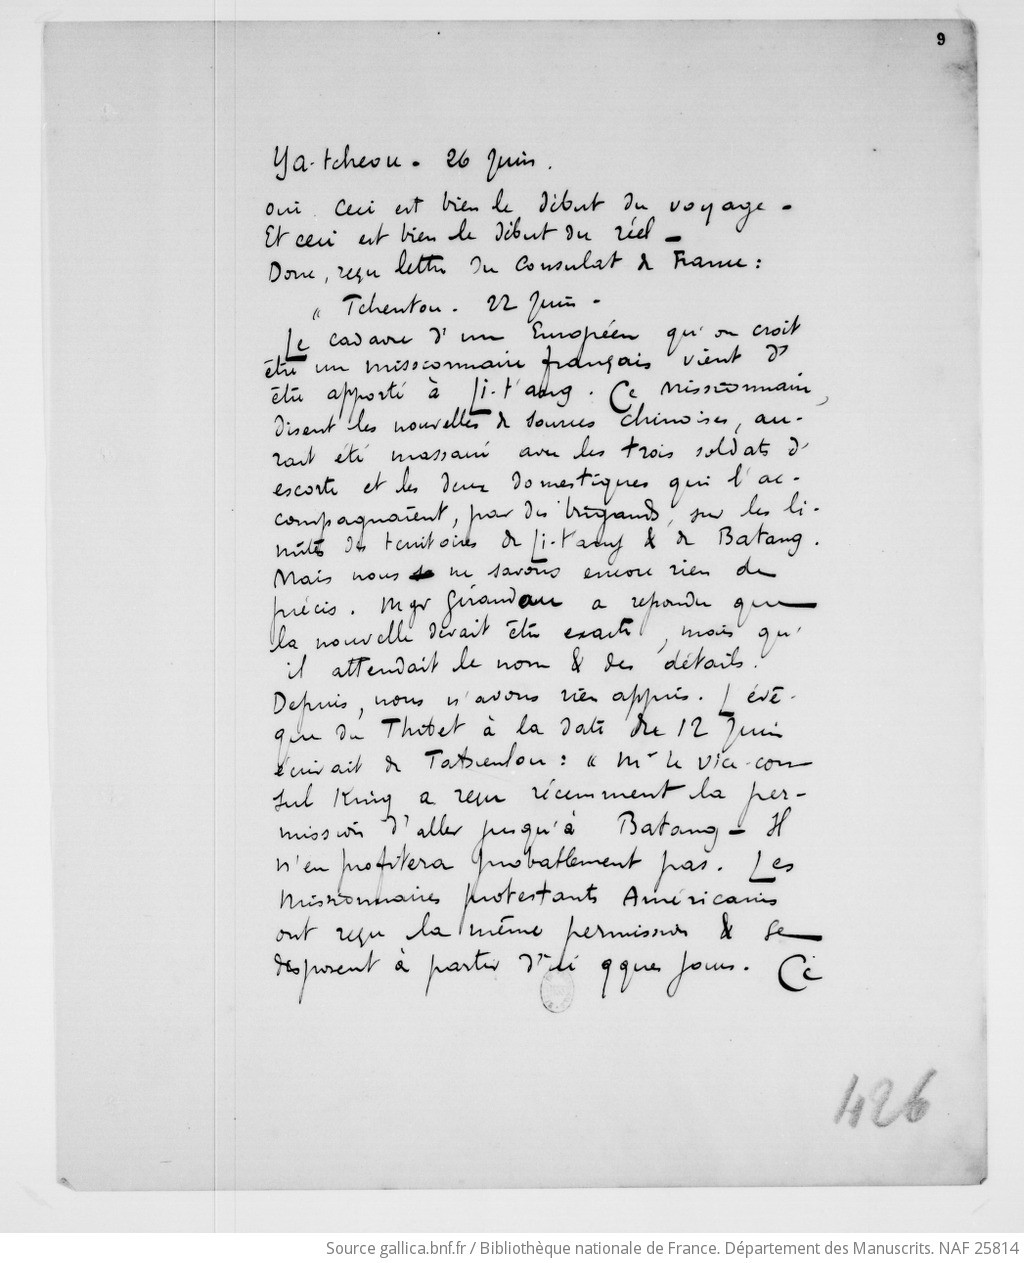 9
Ya-tcheou. 26 Juin.
oui. Ceci est bien le début du voyage -
Et ceci est bien le début du réel -
Donc, reçu lettre du Consulat de France :
"Tchentou. 22 Juin -
Le cadavre d'un Européen qu'on croit
être un missionnaire français vient d'
être apporté à Li-t'ang. Ce missionnaire,
disent les nouvelles de sources chinoises, au-
rait été massacré avec les trois soldats d'
escorte et les deux domestiques qui l'ac-
compagnaient, par des brigands, sur les li-
mites des territoires de Li-t'ang & de Batang.
Mais nous ne savons encore rien de
précis. Mgr Giraudeau a répondu que
la nouvelle devait être exacte, mais qu'
il attendait le nom & des détails.
Depuis, nous n'avons rien appris. L'évê-
que du Thibet à la date du 12 Juin
écrivait de Tatsienlou : " Mr le vice-con
sul King a reçu récemment la per-
mission d'aller jusqu'à Batang - Il
n'en profitera probablement pas. Les
missionnaires protestants Américains
ont reçu la même permission & se
disposent à partir d'ici qques jours. Ce
426
Source gallica.bnf.fr / Bibliothèque nationale de France. Département des Manuscrits. NAF 25814